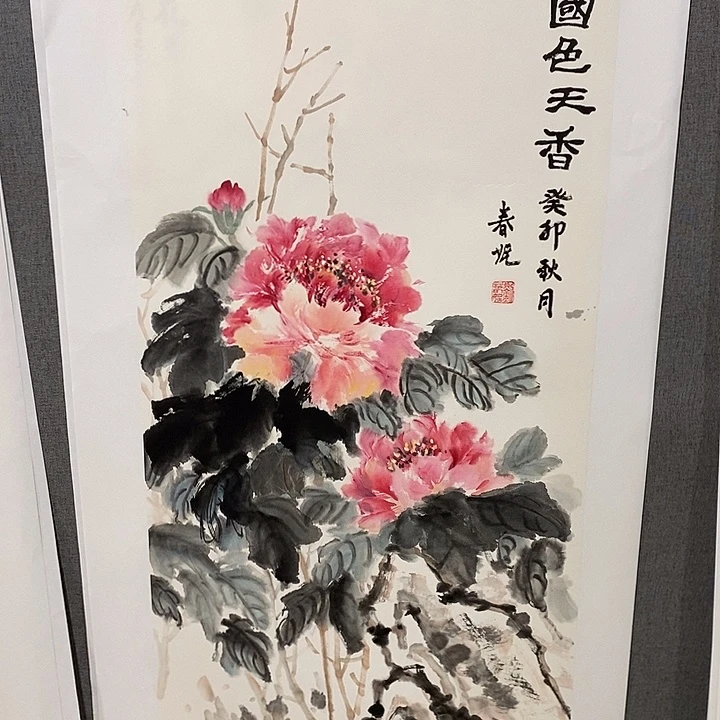 國色天香
癸卯秋月
春